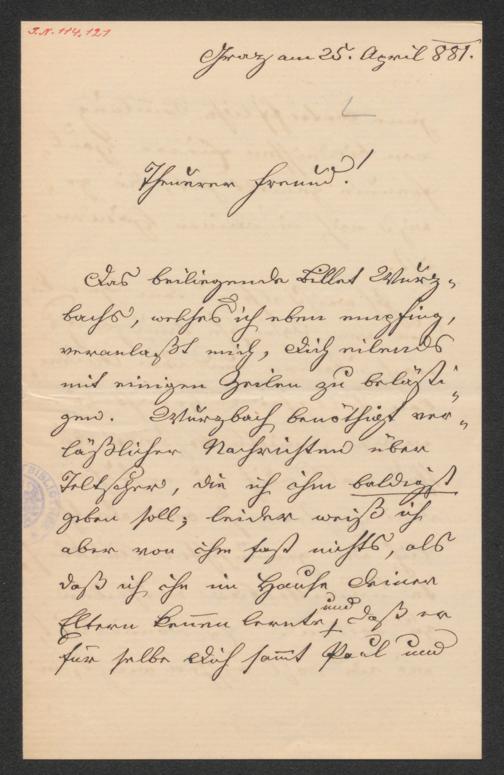 I.N. 114.121
Graz am 25. April 881.
Theurer Freund!
Das beiliegende Billet Wurz-
bachs, welches ich eben empfing,
veranlaßt mich, Dich eilends
mit einigen Zeilen zu belästi-
gen. Wurzbach benöthigt ver-
läßlicher Nachrichten über
Teltscher, die ich ihm baldigst
geben soll; leider weiß ich
aber von ihm fast nichts, als
daß ich ihn im Hause Deiner
Eltern kennen lernte und daß er
für selbe Dich sammt Paul und